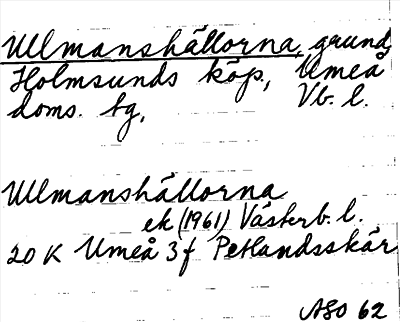 Ullmanshällorna, grund,
Holmsunds köp, Umeå
doms. tg, Vb. l.
Ullmanshällorna
ek (1961) Västerb. l.
20 K Umeå 3 f Petlandsskär
ASO 62